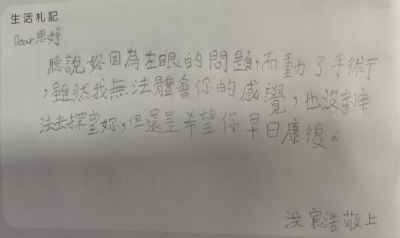 生活札記
Dear思妤
聽說妳因為左眼的問題,而動了手術
,雖然我無法體會你的感覺,也沒辦
法去探望妳,但還是希望你早日康復。
洪家浩敬上